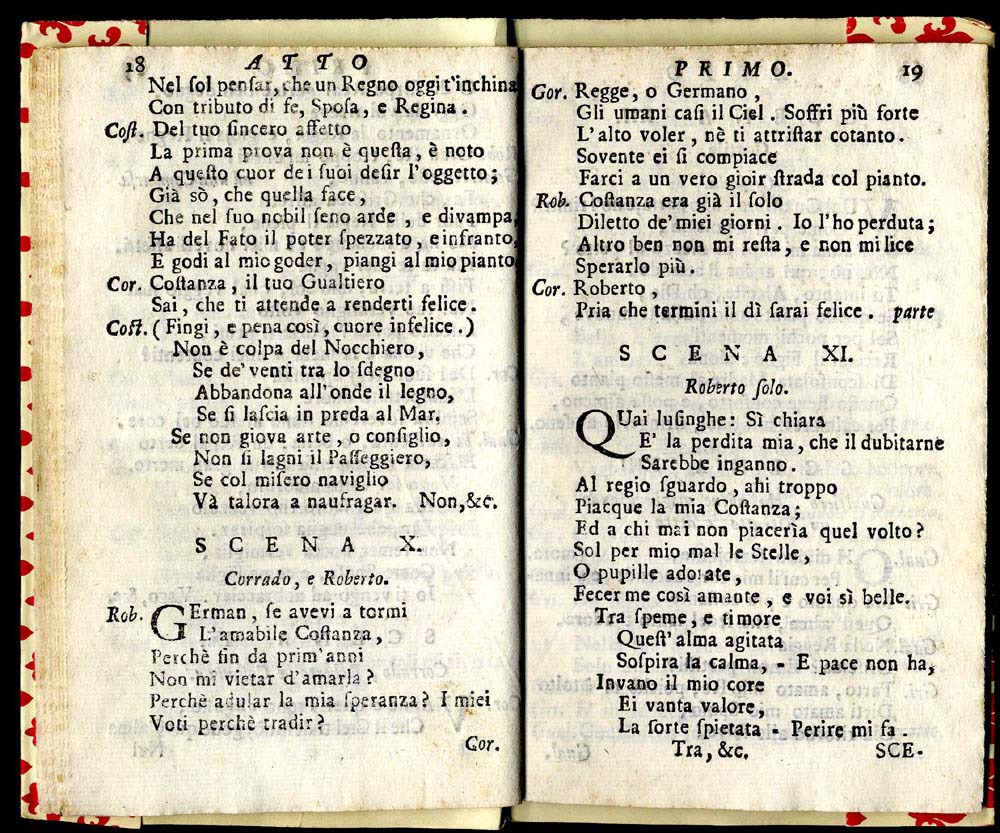 18 ATTO
Nel ſol penſar, che un Regno oggi t'inchina
Con tributo di fe, Spoſa, e Regina.
Coſt. Del tuo ſincero affetto
La prima prova non è queſta, è noto
A queſto cuor dei ſuoi deſir l'oggetto;
Già sò, che quella face,
Che nel ſuo nobil ſeno arde, e divampa,
Ha del Fato il poter ſpezzato, e infranto,
E godi al mio goder, piangi al mio pianto
Cor. Coſtanza, il tuo Gualtiero
Sai, che ti attende a renderti felice.
Coſt. (Fingi, e pena così, cuore infelice.)
Non è colpa del Nocchiero,
Se de' venti tra lo ſdegno
Abbandona all'onde il legno,
Se ſi laſcia in preda al Mar.
Se non giova arte, o conſiglio,
Non ſi lagni il Paſſeggiero,
Se col miſero naviglio
Và talora a naufragar. Non, &c.
SCENA X.
Corrado, e Roberto.
Rob. GErman, ſe avevi a tormi
L'amabile Coſtanza,
Perchè ſin da prim'anni
Non mi vietar d'amarla?
Perchè adular la mia ſperanza? I miei
Voti perchè tradir?
Cor.
PRIMO. 19
Cor. Regge, o Germano,
Gli umani caſi il Ciel. Soffri più forte
L'alto voler, nè ti attriſtar cotanto.
Sovente ei ſi compiace
Farci a un vero gioir ſtrada col pianto.
Rob. Coſtanza era già il ſolo
Diletto de' miei giorni. Io l'ho perduta;
Altro ben non mi reſta, e non mi lice
Sperarlo più.
Cor. Roberto,
Pria che termini il dì ſarai felice. parte
SCENA XI.
Roberto ſolo.
QUai luſinghe: Sì chiara
E' la perdita mia, che il dubitarne
Sarebbe inganno.
Al regio ſguardo, ahi troppo
Piacque la mia Coſtanza;
Ed a chi mai non piacerìa quel volto?
Sol per mio mal le Stelle,
O pupille adorate,
Fecer me così amante, e voi sì belle.
Tra ſpeme, e timore
Queſt' alma agitata
Soſpira la calma, - E pace non ha,
Invano il mio core
Ei vanta valore,
La ſorte ſpietata - Perire mi fa.
Tra, &c. SCE-